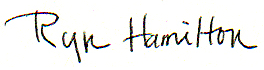 Ryn Hamilton